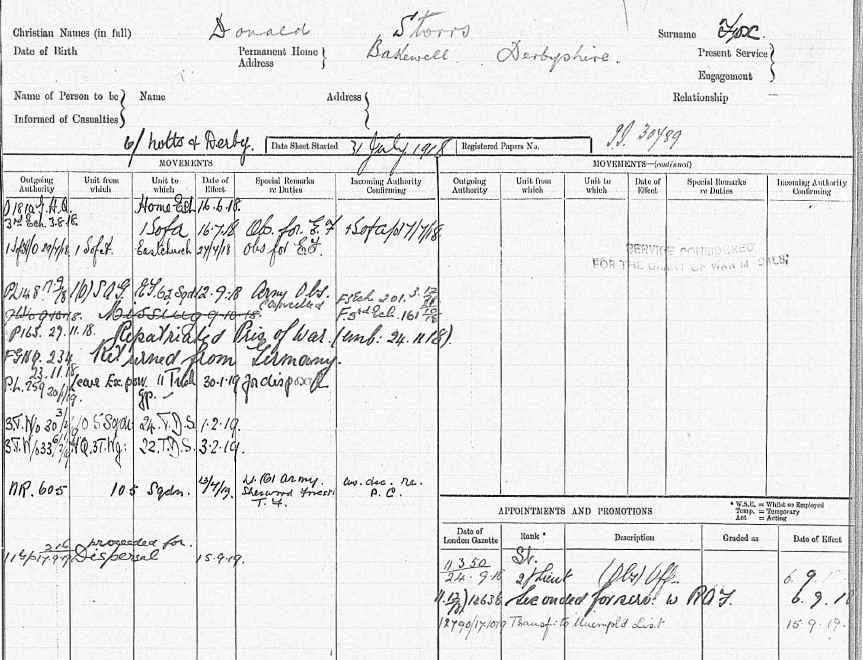 Christian Names (in full) Donald Storrs Surname Fox.
Date of Birth Permanent Home Address Bakewell Derbyshire. Present Service
Engagement
Name of Person to be Informed of Casualties Name Address Relationship
6/ Notts & Derby. Date Sheet Started 31 July 1918 Registered Papers No. 30489
MOVEMENTS
Outgoing Authority Unit from which Unit to which Date of Effect Special Remarks re Duties Incoming Authority Confirming
G.H.Q. Home Est 16.6.18.
3rd Ech. 3.8.18. 1 Sofa 16.7.18 Obs. for E.F 1 Sofa 17/7/18
29/7/18 1 Sofa. Eastchurch 27/7/18 Obs for E.F.
(O) S A G E.F. 62 Sqdn 12.9.18 Army Obs. FS Ech 201. 3.12
9.10.18. Missing 9.10.18. Cancelled F. 3rd Ech. 161
P165. 29.11.18. Repatriated Pris of War. (emb: 24.11.18).
F GHQ. 234 Returned from Germany.
23.11.18
P.L. 259 Leave Ex pow. 11 gp. 30.1.19 for disposal
3.T.W/o 30 105 Sqdn: 24.T.D.S. 1.2.19.
3.T.W/o 33 HQ. 3T.Wg: 22.T.D.S. 3.2.19.
NR. 605 105 Sqdn. 13/4/19. Army. Sherwood Forest: T.F. re. P.C.
216 proceeded for
Dispersal 15.9.19.
MOVEMENTS—(continued)
Outgoing Authority Unit from which Unit to which Date of Effect Special Remarks re Duties Incoming Authority Confirming
SERVICE CONSIDERED
FOR THE GRANT OF WAR MEDALS
* W.S.E. = Whilst so Employed
Temp. = Temporary
Act = Acting
APPOINTMENTS AND PROMOTIONS
Date of London Gazette Rank * Description Graded as Date of Effect
11350
24.9.18 2/Lieut (Obs) Off. 6.9
14636 Seconded for serv: w RAF. 6.9.18
12790/17.10.19 Transf: to Unempld List 15.9.19.